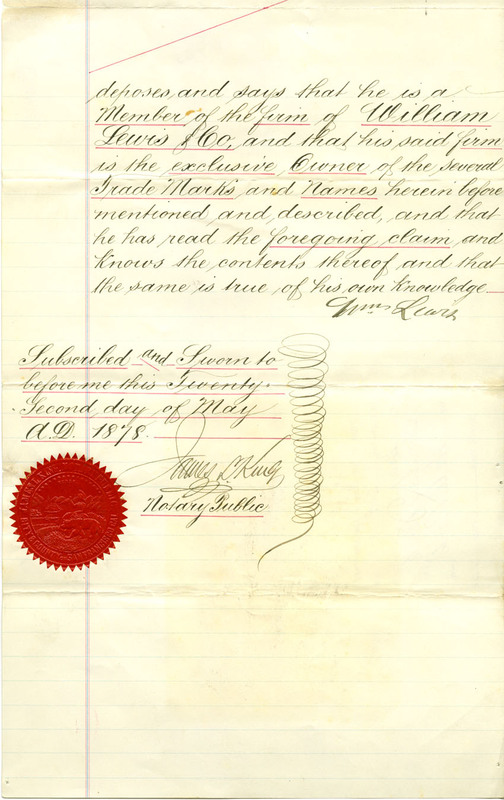 deposes, and says that he is a
Member of the firm of William
Lewis & Co, and that his said firm
is the exclusive Owner of the several
Trade Marks and Names herein before
mentioned and described, and that
he has read the foregoing claim and
knows the contents thereof and that
the same is true of his own knowledge
Wm Lewis
Subscribed and Sworn to
before me this Twenty
Second day of May
A.D. 1878.
James L. King
Notary Public